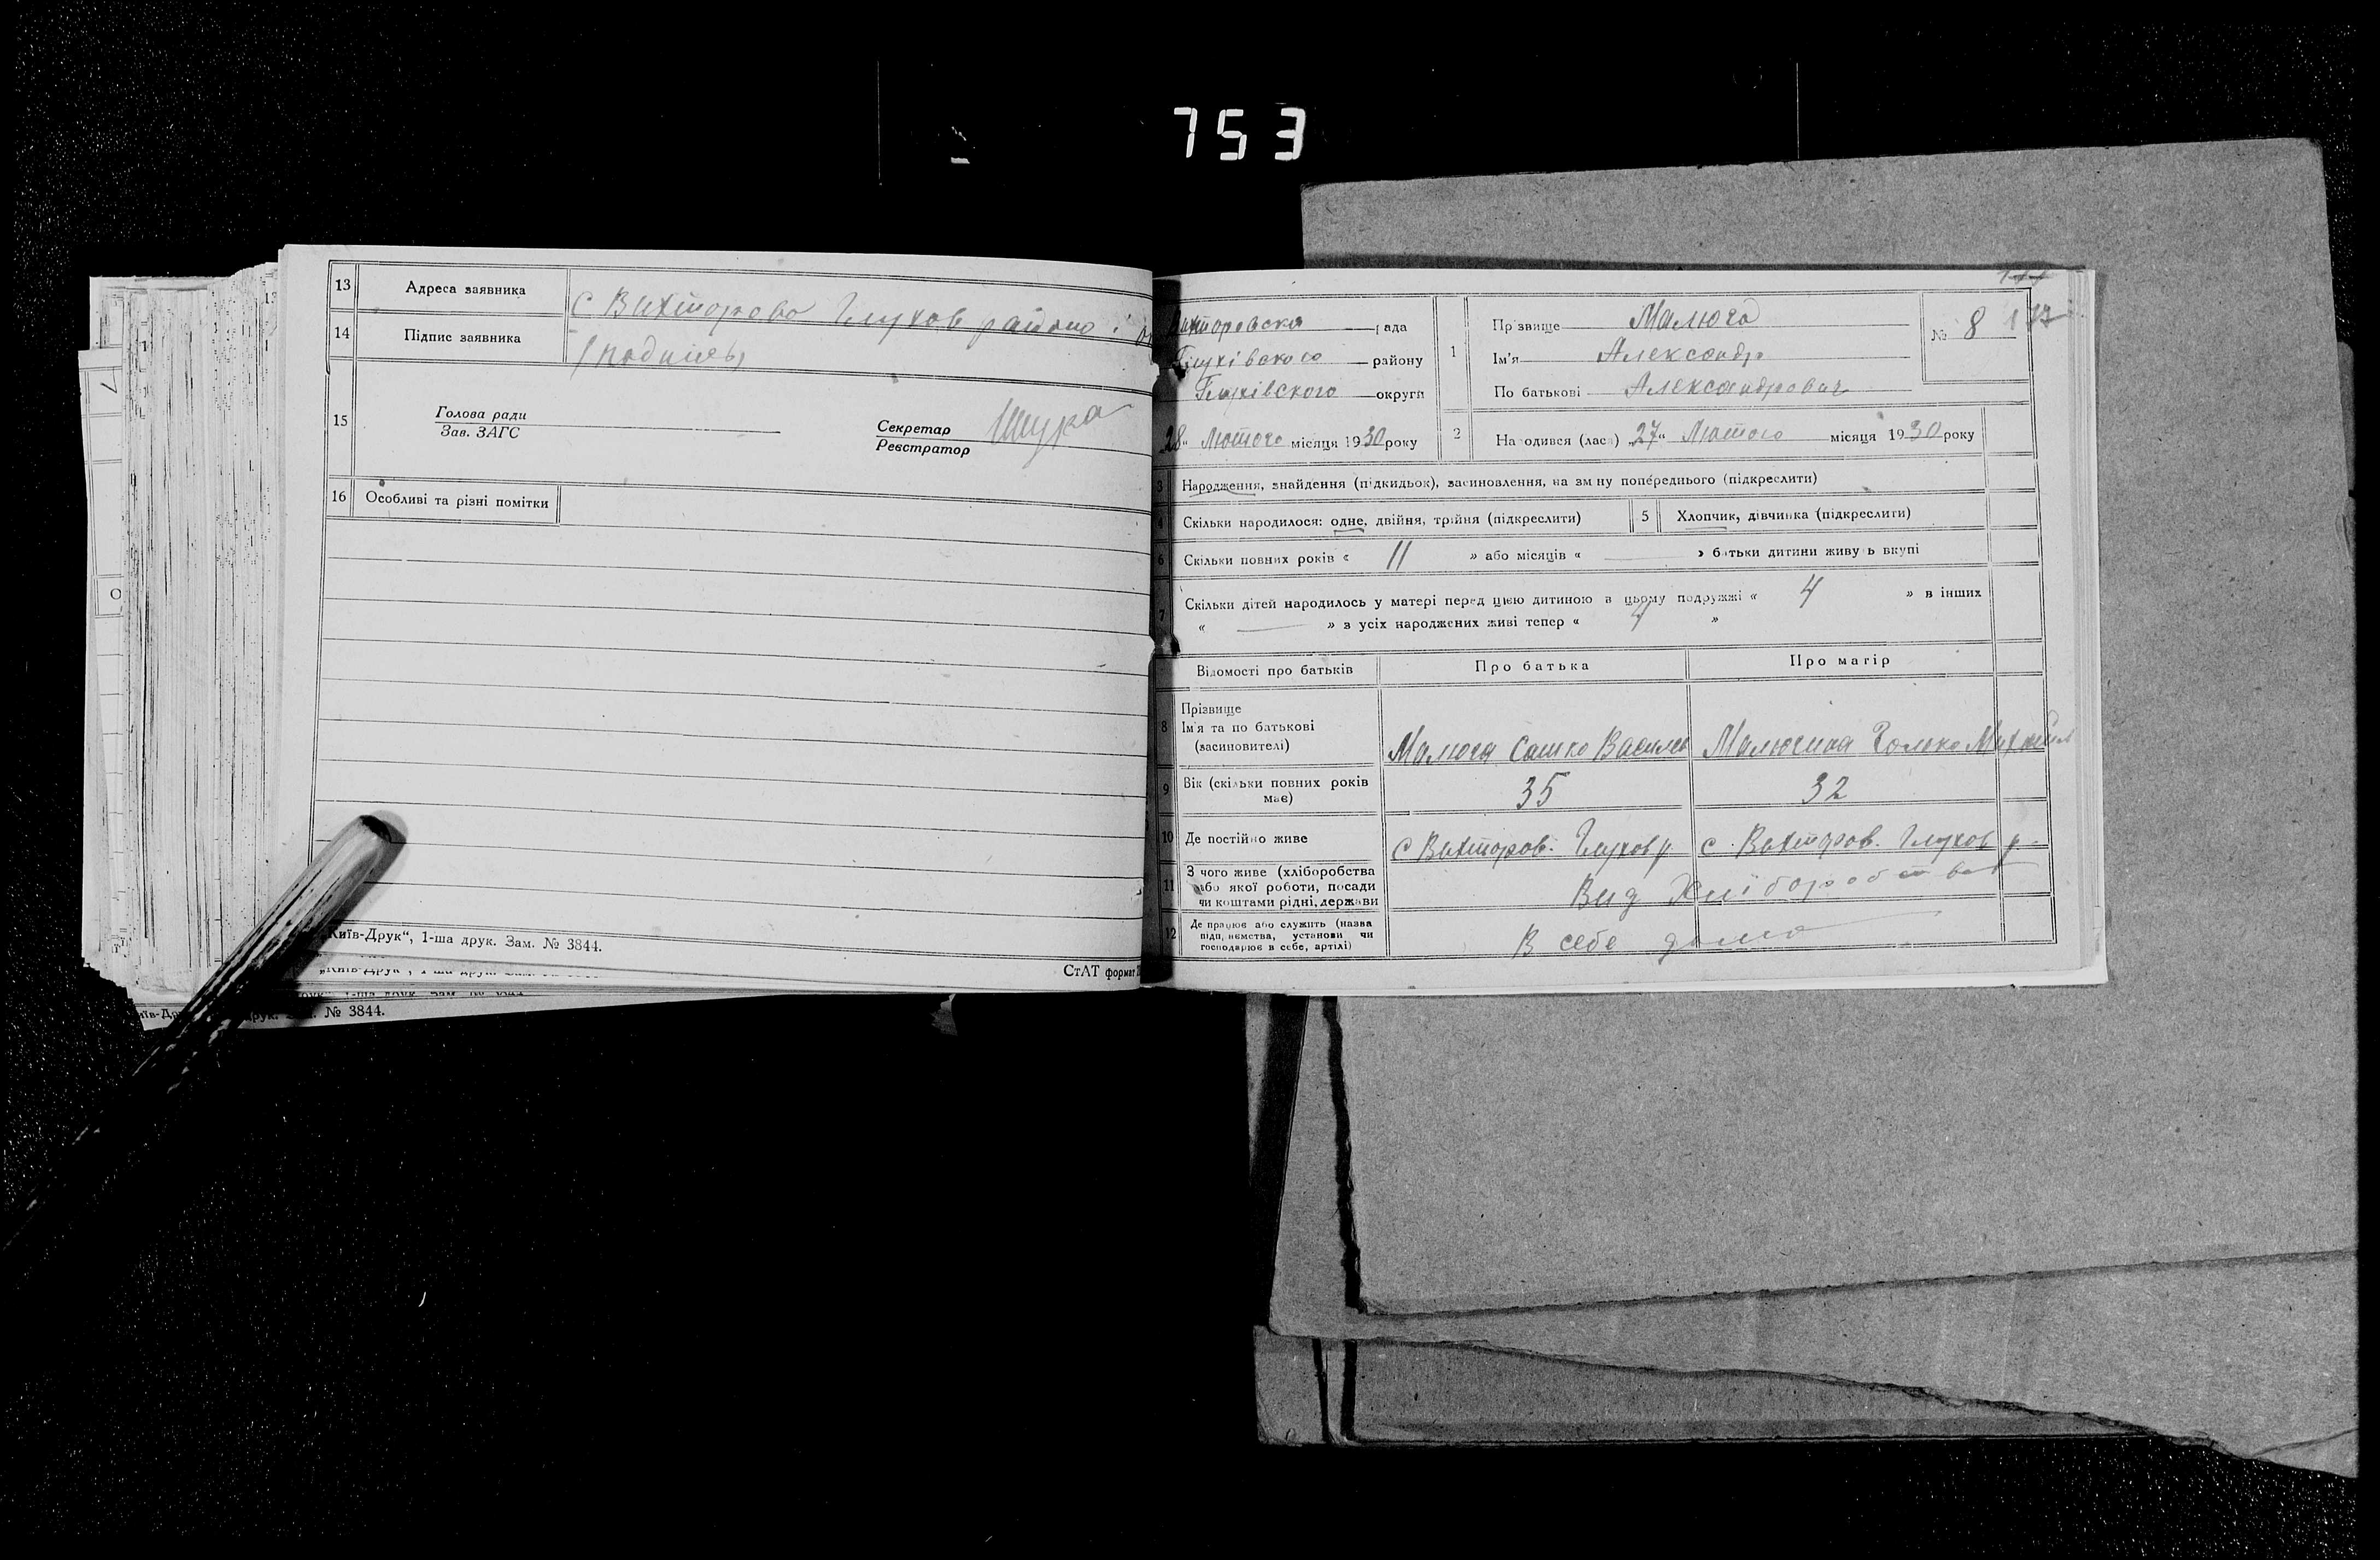 753
13 Адреса заявника с Вихторово Глухов району і
14 Підпис заявника (подпись)
15 Голова ради
Зав. ЗАГС
Секретар
Реєстратор
Щука
16 Особливі та різні помітки
„Київ-Друк“, 1-ша друк. Зам. № 3844.
СтАТ формат
№ 3844.
Вихторовска рада
Глухівського району
Глухівского округи
28 Лютого місяця 1930 року
1 Прізвище Малюга
Ім'я Александр
По батькові Александрович
№ 8
2 Народився (лася) „27“ Лютого місяця 1930 року
3 Народження, знайдення (підкидьок), засиновлення, на зміну попереднього (підкреслити)
4 Скільки народилося: одне, двійня, трійня (підкреслити) 5 Хлопчик, дівчинка (підкреслити)
6 Скільки повних років « 11 » або місяців « — » батьки дитини живуть вкупі
7 Скільки дітей народилось у матері перед цією дитиною в цьому подружжі « 4 » в інших
« — » з усіх народжених живі тепер « 4 »
Відомості про батьків Про батька Про матір
8 Прізвище
Ім'я та по батькові
(засиновителі)
Малюга Сашко Василев Малюгина Михайл
9 Вік (скільки повних років має) 35 32
10 Де постійно живе с Вихторов. Глухов р. с. Вихторов. Глухов р.
11 З чого живе (хліборобства
або якої роботи, посади
чи коштами рідні, держави
Вид Хліборобства
12 Де працює або служить (назва
підприємства, установи чи
господарює в себе, артілі)
В себе дома